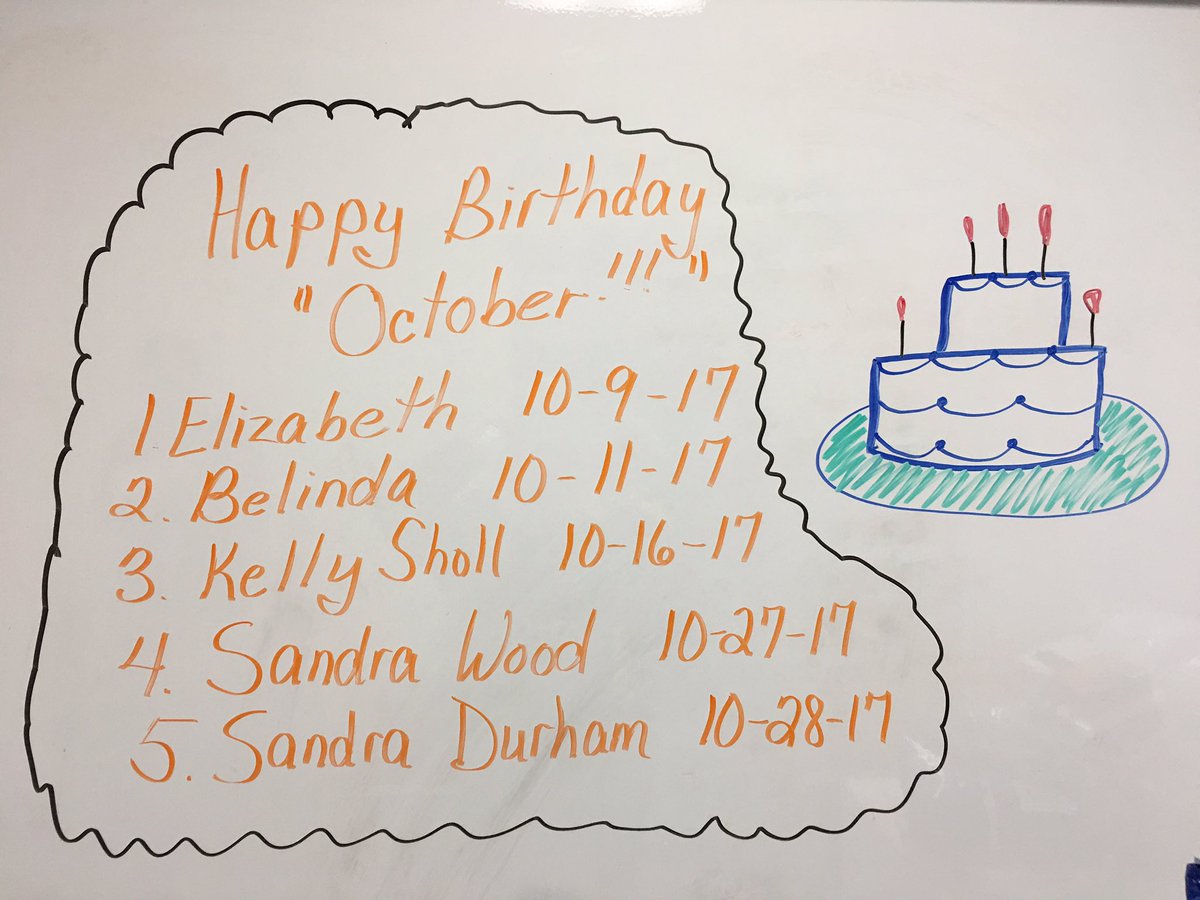 Happy Birthday
"October!!!"
1. Elizabeth 10-9-17
2. Belinda 10-11-17
3. Kelly Sholl 10-16-17
4. Sandra Wood 10-27-17
5. Sandra Durham 10-28-17